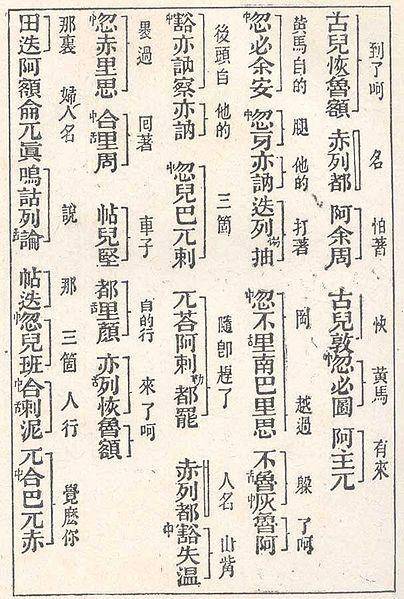 到了呵 名 怕著 快 黃馬 有來
古兒恢魯額 赤列都 阿余周 古兒敦中忽必圖 阿主兀
黃馬自的 腿 他的 打著 岡 越過 躱 了呵
中忽必余安 中忽牙亦訥 迭列抽 中忽不里南巴里思 不舌魯中灰魯阿
後頭自 他的 三箇 隨卽趕了 人名 山嘴
中豁亦訥察亦訥 中忽兒巴兀剌 兀荅阿剌勒都罷 赤列都 中豁失温
過 囘著 車子 自的行 來了呵
中忽赤里思 中合舌里周 帖兒堅 都舌里顏 亦舌列恢魯額
那裏 婦人名 說 那 三箇 人行 覺麽你
田迭阿額侖兀眞 嗚詁列舌論 帖迭中忽兒班 中合舌剌泥 兀中合巴兀赤